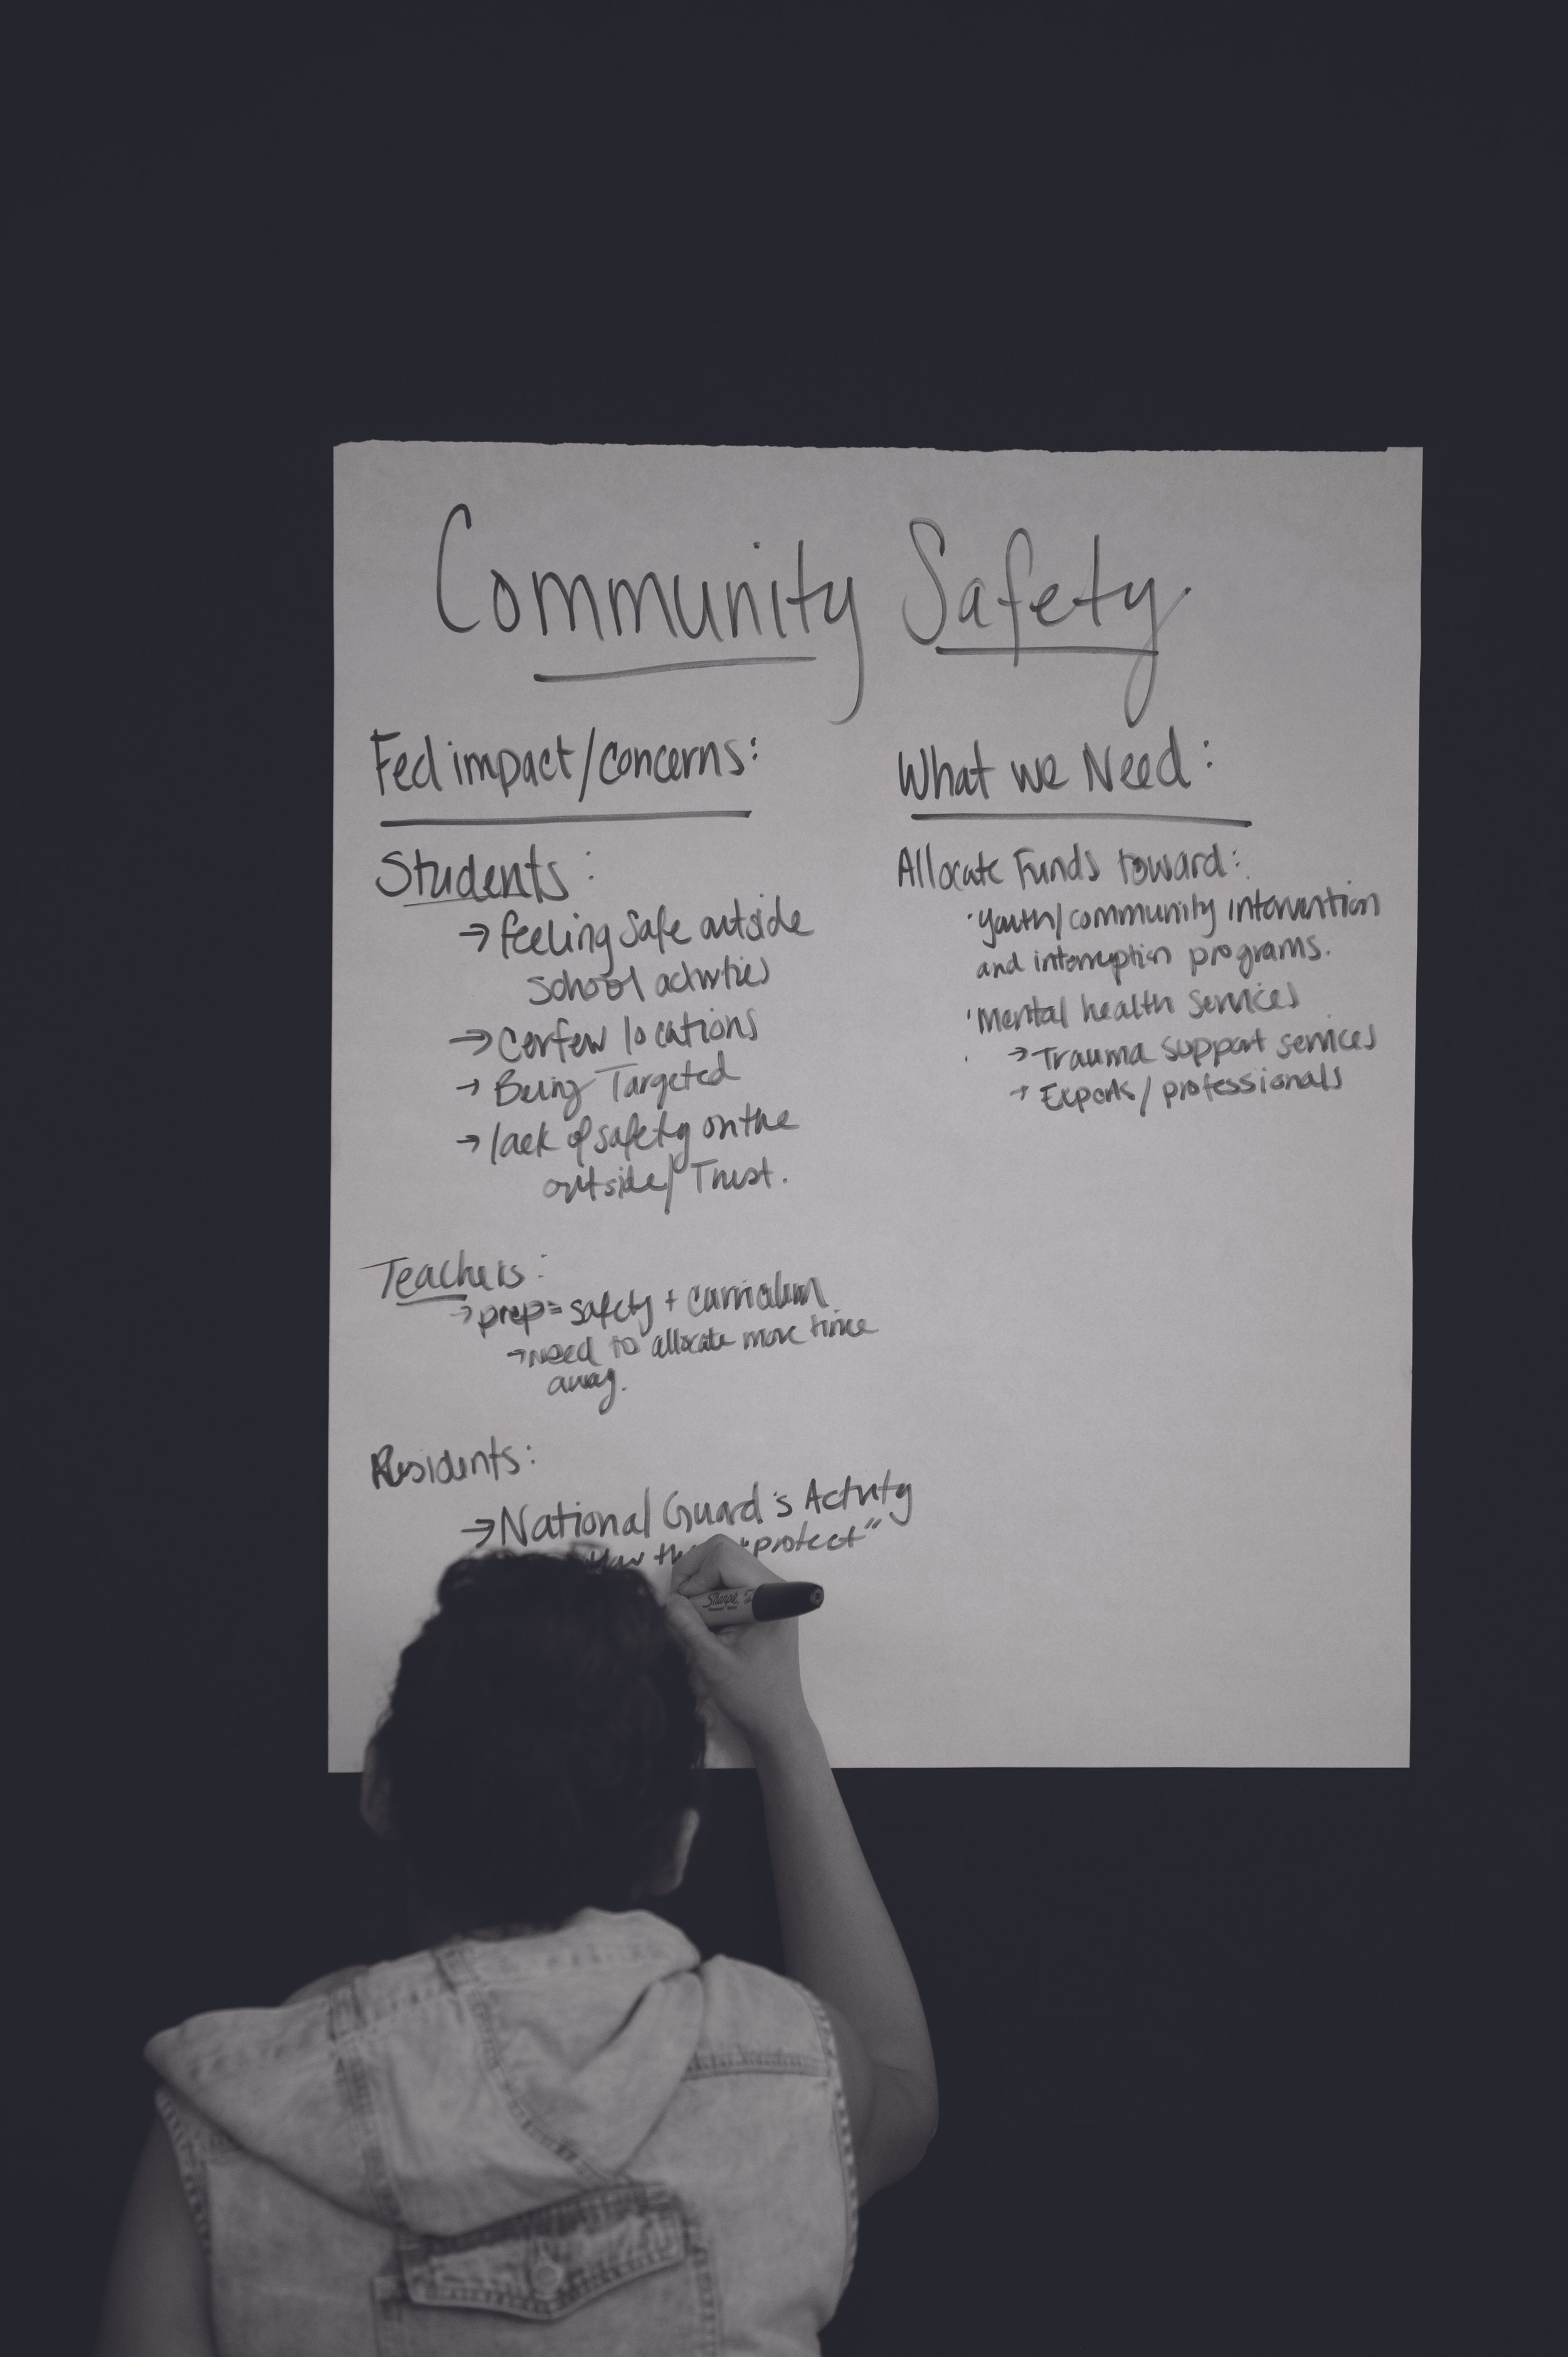 Community Safety
Fed impact/concerns:
Students:
→ feeling safe outside
school activities
→ Cerfew locations
→ Being Targeted
→ lack of safety on the
outside/ Trust.
Teachers:
→ prep= safety + curriculum
→ need to allocate more time
away.
Residents:
→ National Guard's Activity
"protect"
Sharpie
What we Need:
Allocate Funds toward:
· Youth/community intervention
and interruption programs.
· Mental health services
→ Trauma support services
→ Experts/professionals